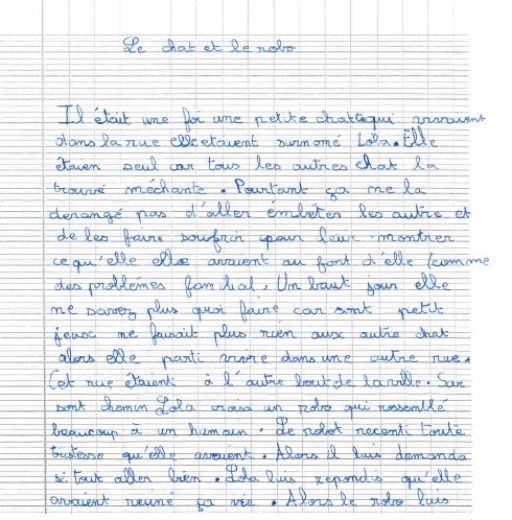 Le chat et le robo
Il était une foi une petite chatte qui vivraient
dans la rue elle etaient surnomé Lola. Elle
étaien seul car tous les autres chat la
trouvé méchante. Pourtant ça ne la
derangé pas d'aller embêter les autre et
de les faire soufrir pour leur montrer
ce qu'elle elle avaient au font d'elle (comme
des problémes familial. Un baut jour elle
ne savez plus quoi faire car sont petit
jeux ne faisait plus rien aux autre chat
alors elle parti vivre dans une autre rue.
Cet rue étaient à l'autre bout de la ville. Sur
sont chemin Lola croisa un robo qui ressemblé
beaucoup à un humain. Le robot recenti toute
tristesse qu'elle avaient. Alors il luis demanda
si tout aller bien. Lola luis repondis qu'elle
avaient ruiné ça vie. Alors le robo luis